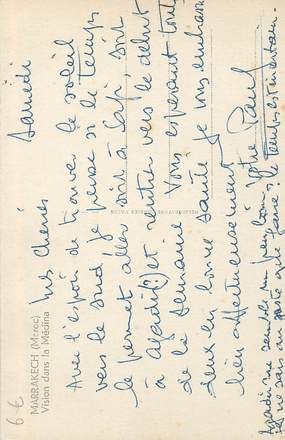 MARRAKECH (Maroc)
Vision dans la Médina
6 €
Samedi
Mes Chéries
Avec l'espoir de trouver le soleil
vers le sud je pense si le temps
le permet aller soit à Safi, soit
à Agadir(?) et rentrer vers le début
de la semaine. Vous espérant tout
deux en bonne santé je vous embrasse
bien affectueusement
Votre Paul
Agadir me semble un peu loin
et ne sais au juste que faire? le temps est incertain.